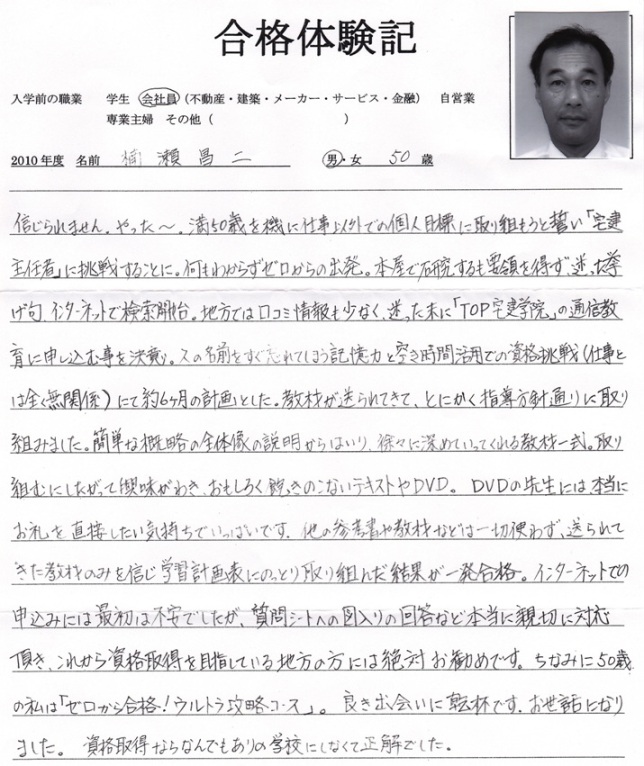 合格体験記
入学前の職業　学生　会社員（不動産・建築・メーカー・サービス・金融）　自営業
専業主婦　その他（　　　　　　　　　　）
2010年度　名前　楠瀬昌二　男・女　50歳
信じられません。やった～。満50歳を機に仕事以外での個人目標に取り組もうと誓い「宅建
主任者」に挑戦することに。何もわからずゼロからの出発。本屋で研究するも要領を得ず迷った挙
げ句、インターネットで検索開始。地方では口コミ情報も少なく、迷った末に「TOP宅建学院」の通信教
育に申し込む事を決意。人の名前をすぐ忘れてしまう記憶力と空き時間活用での資格挑戦（仕事と
は全く無関係）にて約6ヶ月の計画とした。教材が送られてきて、とにかく指導方針通りに取り
組みました。簡単な概略の全体像の説明からはいり、徐々に深めていってくれる教材一式。取り
組むにしたがって興味がわき、おもしろく飽きのこないテキストやDVD。DVDの先生には、本当に
お礼を直接したい気持ちでいっぱいです。他の参考書や教材などは一切使わず、送られて
きた教材のみを信じ学習計画表にのっとり取り組んだ結果が一発合格。インターネットでの
申込みには最初は不安でしたが、質問シートへの図入りの回答など本当に親切に対応
頂き、これから資格取得を目指している地方の方には絶対お勧めです。ちなみに50歳
の私は「ゼロから合格！ウルトラ攻略コース」。良き出会いに乾杯です。お世話になり
ました。資格取得ならなんでもありの学校にしなくて正解でした。